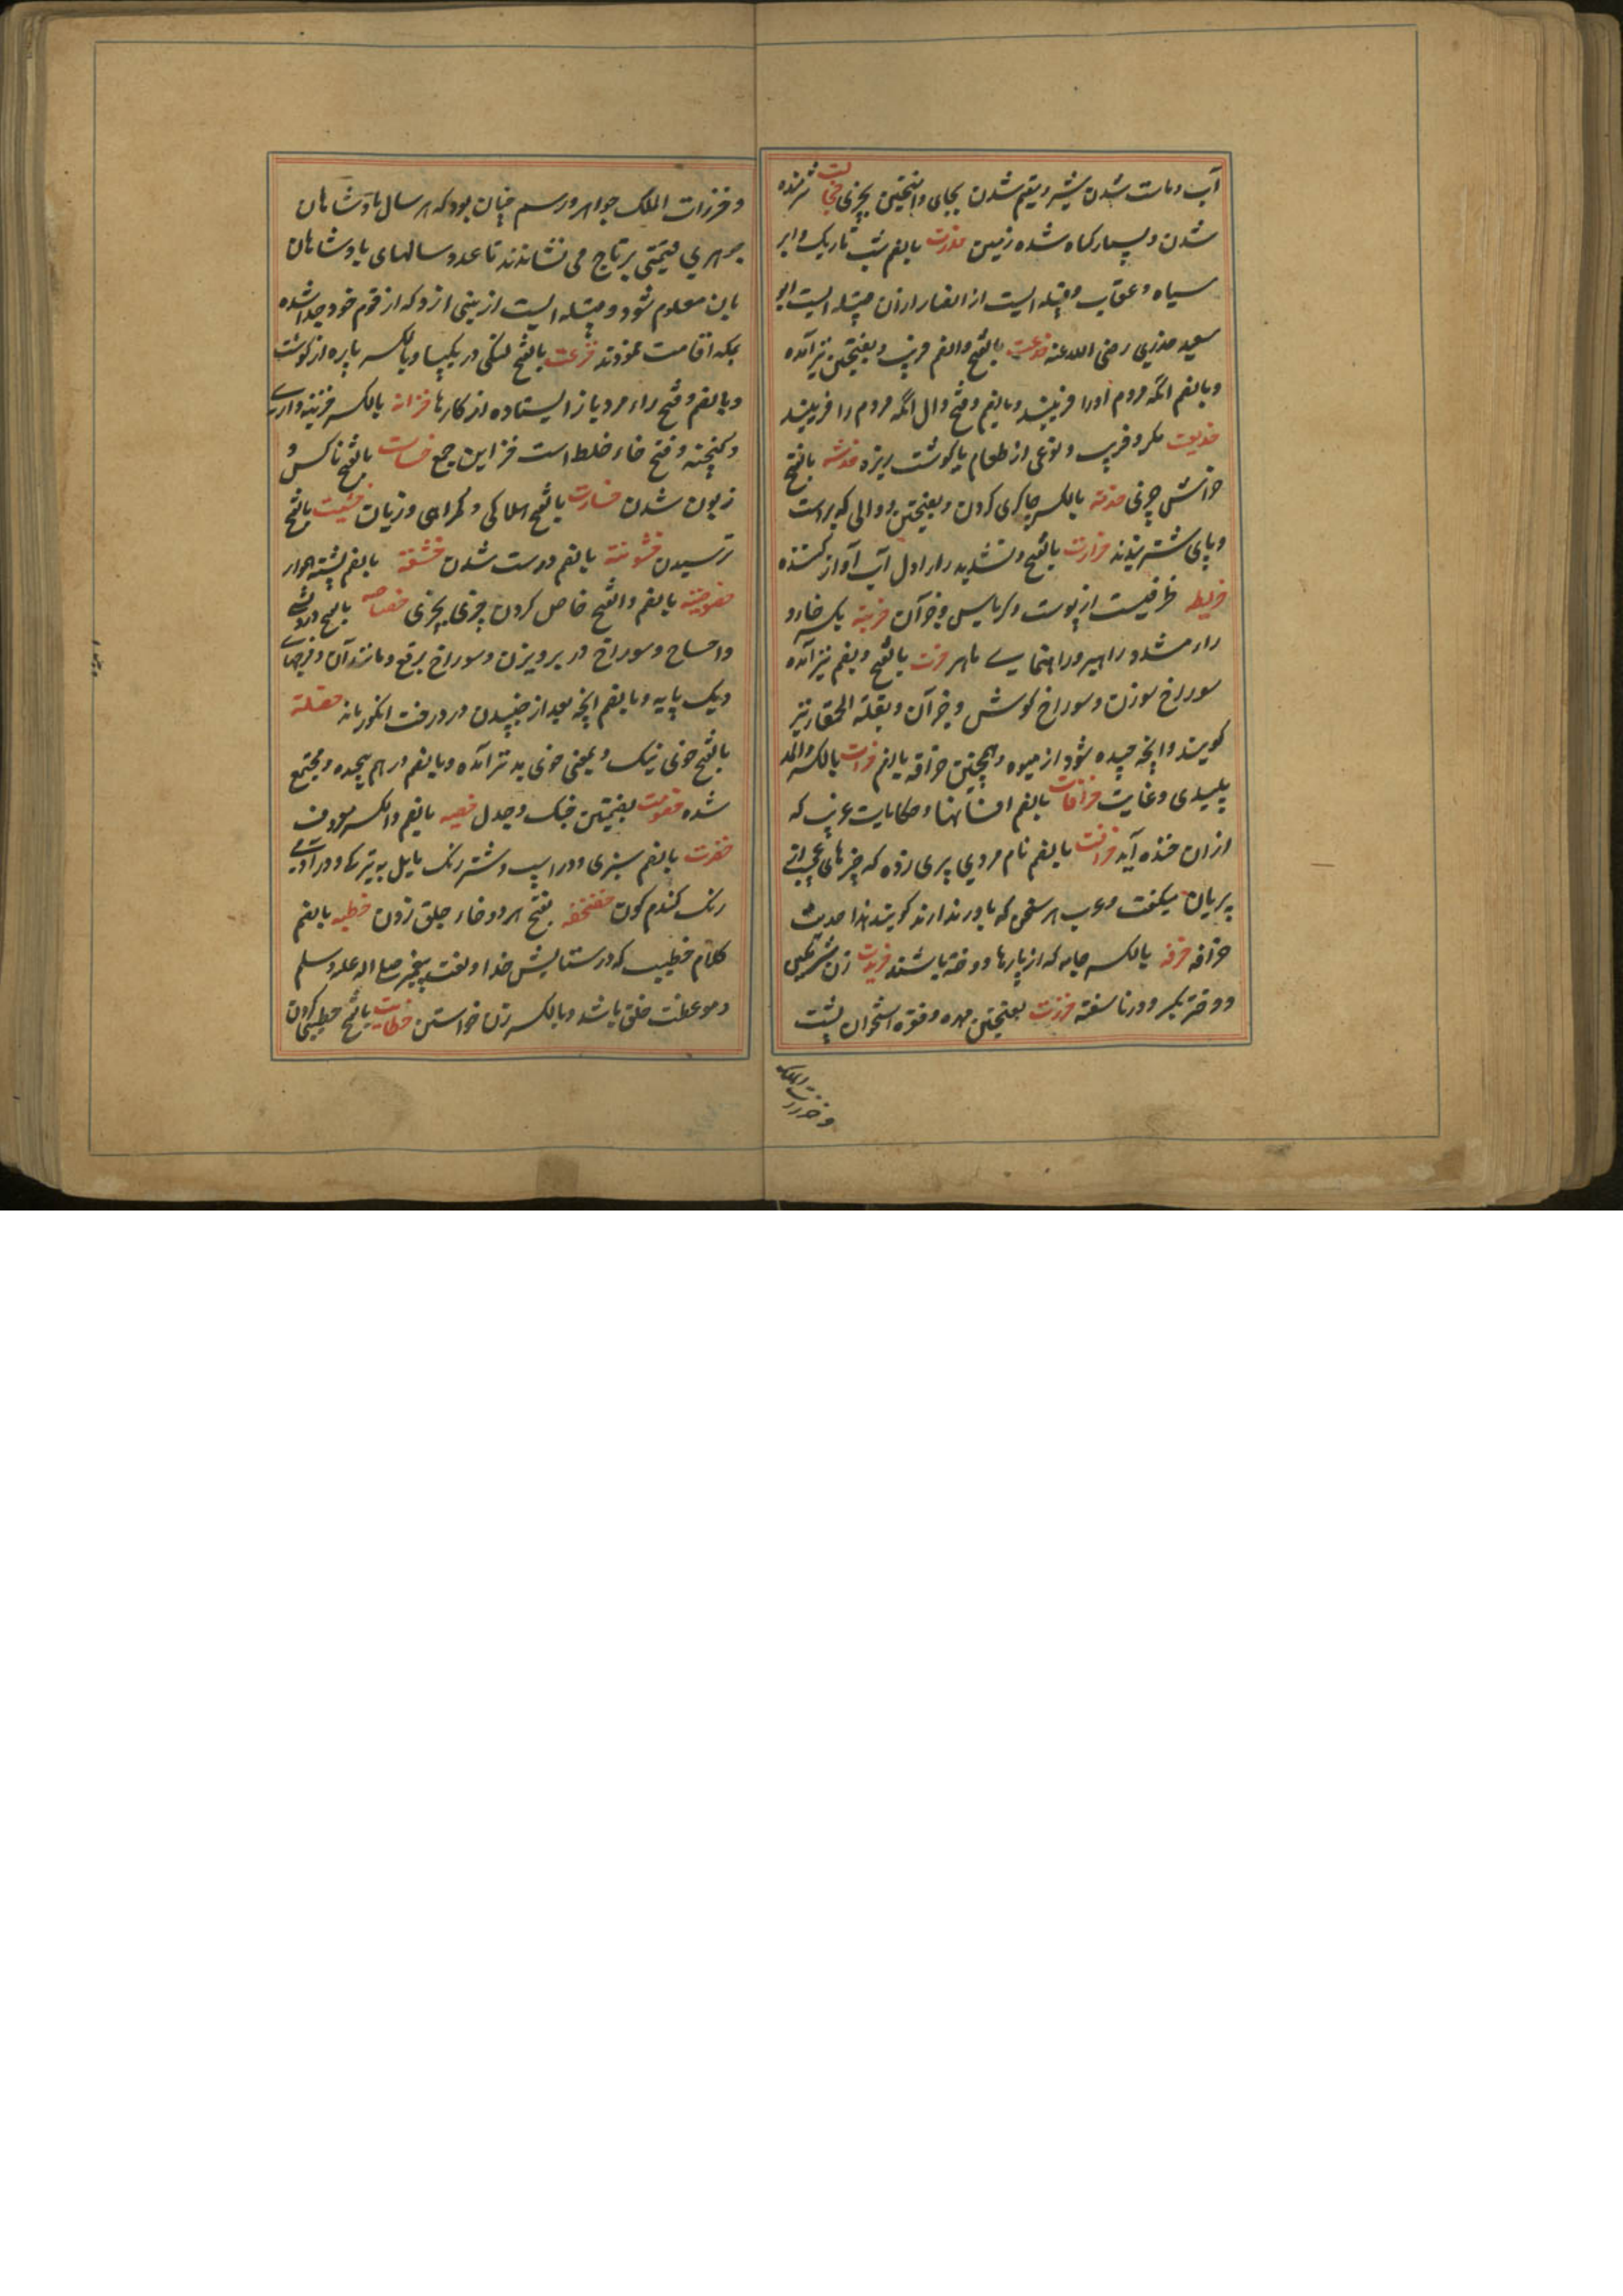 آب و مات شدن شیر و مقیم شدن بجای و آمیختن بچیزی خجالت شرمنده
شدن و بسیار گیاه شده زمین خدرت بالضم شب تاریک و ابر
سیاه و عقاب و قبیله ایست از انصار ازان قبیله ایست ابو
سعید خدری رضی الله عنه خدعت بالفتح و الضم فریب و بفتحتین نیز آمده
و بالضم انکه مردم اورا فریبند و بالضم و فتح دال انکه مردم را فریبد
خدیعت مکر و فریب و نوعی از طعام با گوشت ریزه خدشه بالفتح
خراش چیزی خدمة بالکسر چاکری کردن و بفتحتین دوالی که بر است
و پای شتر بندند خرارت بالفتح و تشدید راء اول آب آواز کننده
خریطه ظرفیست از پوست و کرباس و جز آن خریته بکسر خاء و
راء مشدد راهبر و راهنمایی ماهر خرت بالفتح و بضم نیز آمده
سوراخ سوزن و سوراخ گوش و جز آن و بقلة الحمقا را نیز
گویند و آنچه چیده شود از میوه و همچنین خرافه بالضم خرات بالکسر والمد
پلیدی و غایت خرافات بالضم افسانها و حکایات عرب که
ازان خنده آید خرافت بالضم نام مردی پری زده که چیزهای عجب از
پریان میگفت و عرب هر سخن که باور ندارند گویند هذا حدیث
خرافه خرقه بالکسر جامه که از پارها دوخته باشند خریدت زن شرمگین
و دختر بکر و در ناسفته خرزت بفتحتین مهره و فقره استخوان پشت
و خرزات الملک
و خرزات الملک جواهر و رسم چنان بود که هر سال پادشاهان
جوهری قیمتی بر تاج می نشاندند تا عدد سالهای پادشاهان
باین معلوم شود و قبیله ایست از بنی ازد که از قوم خود جدا شده
بمکه اقامت نمودند خزعت بالفتح لنگی در یکپا و بالکسر پاره از گوشت
و بالضم و فتح زاء مرد باز ایستاده از کارها خزانه بالکسر خزینه داری
و گنجینه و فتح خاء غلط است خزاین جمع خساست بالفتح ناکس و
زبون شدن خسارت بالفتح هلاکی و گمراهی و زیان خشیت بالفتح
ترسیدن خشونته بالضم درشت شدن خشعة بالضم پشته هموار
خصوصیته بالضم والفتح خاص کردن چیزی بچیزی خصاصه بالفتح درویشی
و احتیاج و سوراخ در پرویزن و سوراخ برقع و مانند آن و فرجهای
دیک پایه و بالضم آنچه بعد از چیدن در درخت انگور ماند خصلة
بالفتح خوی نیک و بمعنی خوی بد نیز آمده و بالضم در هم پیچیده و مجتمع
شده خصومت بضمتین جنگ و جدل خصیه بالضم و الکسر معروف
خضرت بالضم سبزی و در اسپ و شتر رنگ مایل به تیرگی و در آدمی
رنگ گندم گون خضخضه بفتح هر دو خاء جلق زدن خطبه بالضم
کلام خطیب که در ستایش خدا و نعت پیغمبر صلی الله علیه وسلم
و موعظت خلق باشد و بالکسر زن خواستن خطابت بالفتح خطیبی کردن